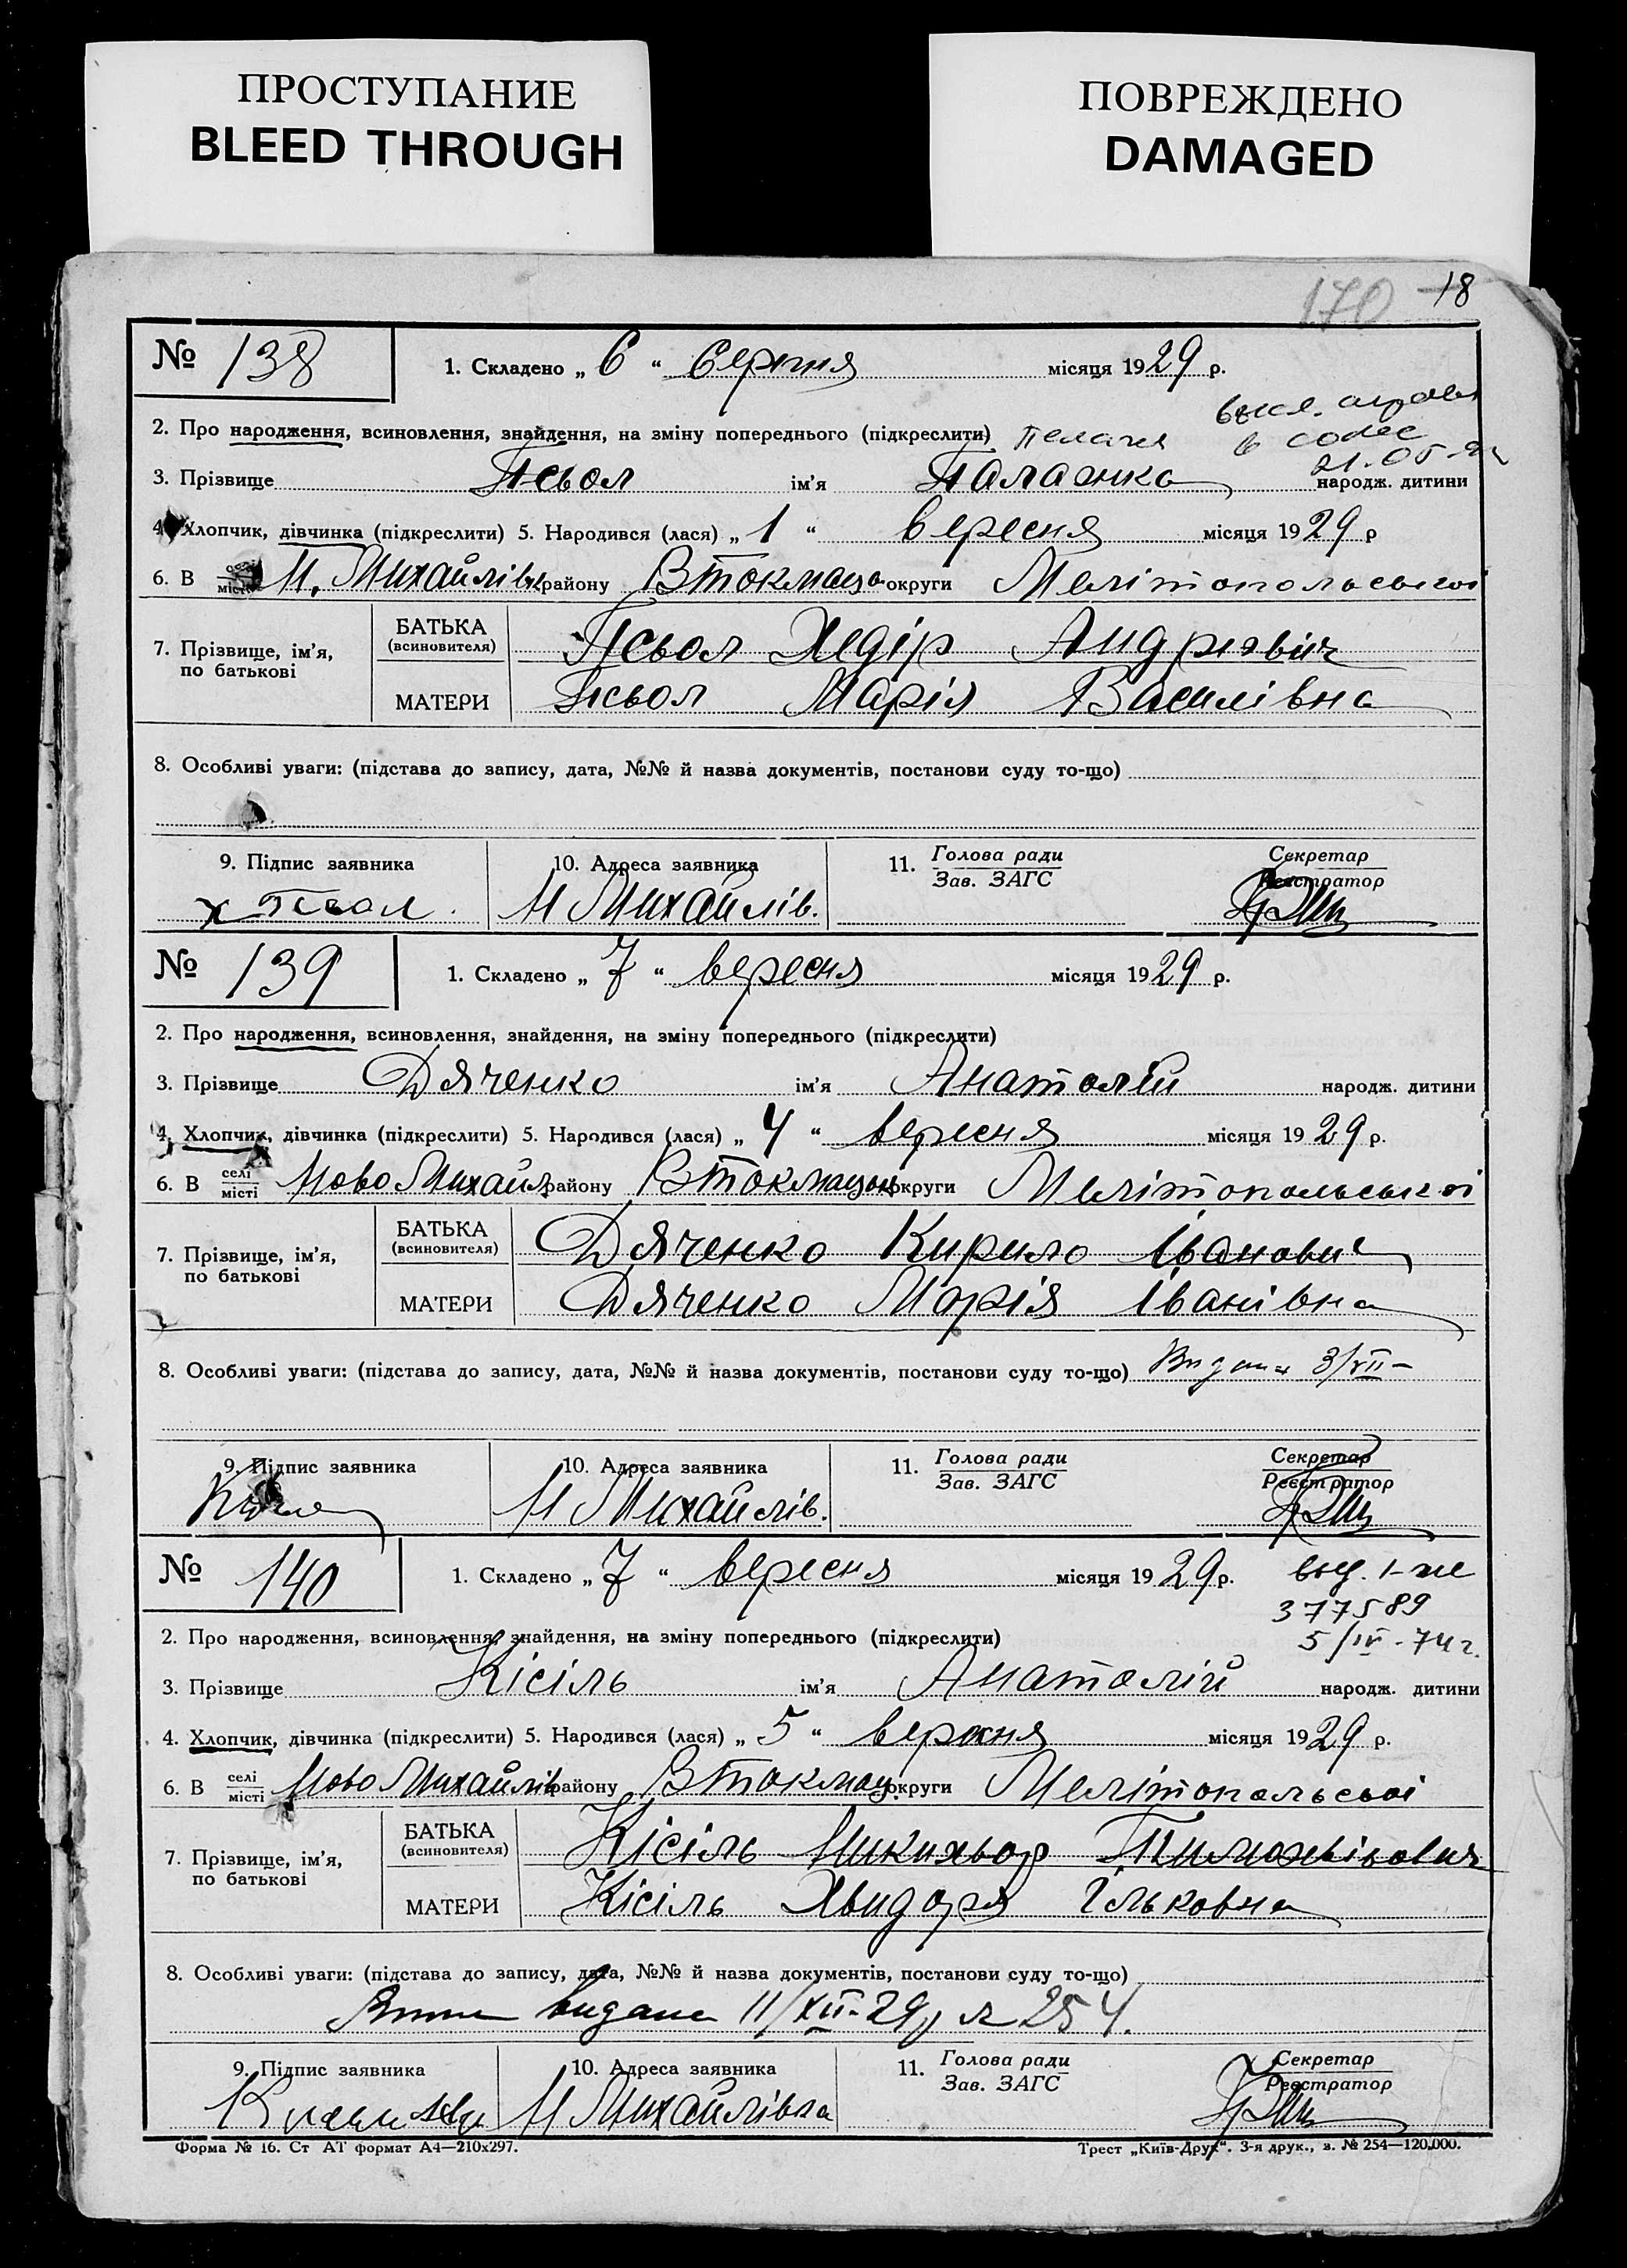 ПРОСТУПАНИЕ
BLEED THROUGH
ПОВРЕЖДЕНО
DAMAGED
170 18
№ 138 1. Складено „ 6 “ серпня місяця 1929 р.
2. Про народження, всиновлення, знайдення, на зміну попереднього (підкреслити) Пелагея
в собес
21-05-
3. Прізвище Псьол ім'я Палажка народж. дитини
4. Хлопчик, дівчинка (підкреслити) 5. Народився (лася) „ 1 “ вересня місяця 1929 р
6. В селі місті Н. Михайлівк району ВТокмацьк округи Мелітопольської
7. Прізвище, ім'я, по батькові
БАТЬКА (всиновителя) Псьол Хедір Андрієвич
МАТЕРИ Псьол Марія Василівна
8. Особливі уваги: (підстава до запису, дата, №№ й назва документів, постанови суду то-що)
9. Підпис заявника 10. Адреса заявника 11. Голова ради Зав. ЗАГС Секретар Реєстратор
х Псьол Н Михайлів.
№ 139 1. Складено „ 7 “ вересня місяця 1929 р.
2. Про народження, всиновлення, знайдення, на зміну попереднього (підкреслити)
3. Прізвище Дяченко ім'я Анатолій народж. дитини
4. Хлопчик, дівчинка (підкреслити) 5. Народився (лася) „ 4 “ вересня місяця 1929 р.
6. В селі місті Ново Михайл району ВТокмацьк округи Мелітопольської
7. Прізвище, ім'я, по батькові
БАТЬКА (всиновителя) Дяченко Кирило Іванович
МАТЕРИ Дяченко Марія Іванівна
8. Особливі уваги: (підстава до запису, дата, №№ й назва документів, постанови суду то-що) Видана 3/VII-
9. Підпис заявника 10. Адреса заявника 11. Голова ради Зав. ЗАГС Секретар Реєстратор
Н Михайлів.
№ 140 1. Складено „ 7 “ вересня місяця 1929 р. выд. 1-
377589
2. Про народження, всиновлення, знайдення, на зміну попереднього (підкреслити) 5/IV-74 г.
3. Прізвище Кісіль ім'я Анатолій народж. дитини
4. Хлопчик, дівчинка (підкреслити) 5. Народився (лася) „ 5 “ вересня місяця 1929 р.
6. В селі місті Ново Михайлів району ВТокмац. округи Мелітопольської
7. Прізвище, ім'я, по батькові
БАТЬКА (всиновителя) Кісіль Никихьор Тимохвійович
МАТЕРИ Кісіль Хвидора Ільковна
8. Особливі уваги: (підстава до запису, дата, №№ й назва документів, постанови суду то-що)
видана 11/XII-29р № 254.
9. Підпис заявника 10. Адреса заявника 11. Голова ради Зав. ЗАГС Секретар Реєстратор
Н Михайлівка
Форма № 16. Ст АТ формат А4—210х297. Трест „Київ-Друк“. 3-я друк., з. № 254—120.000.